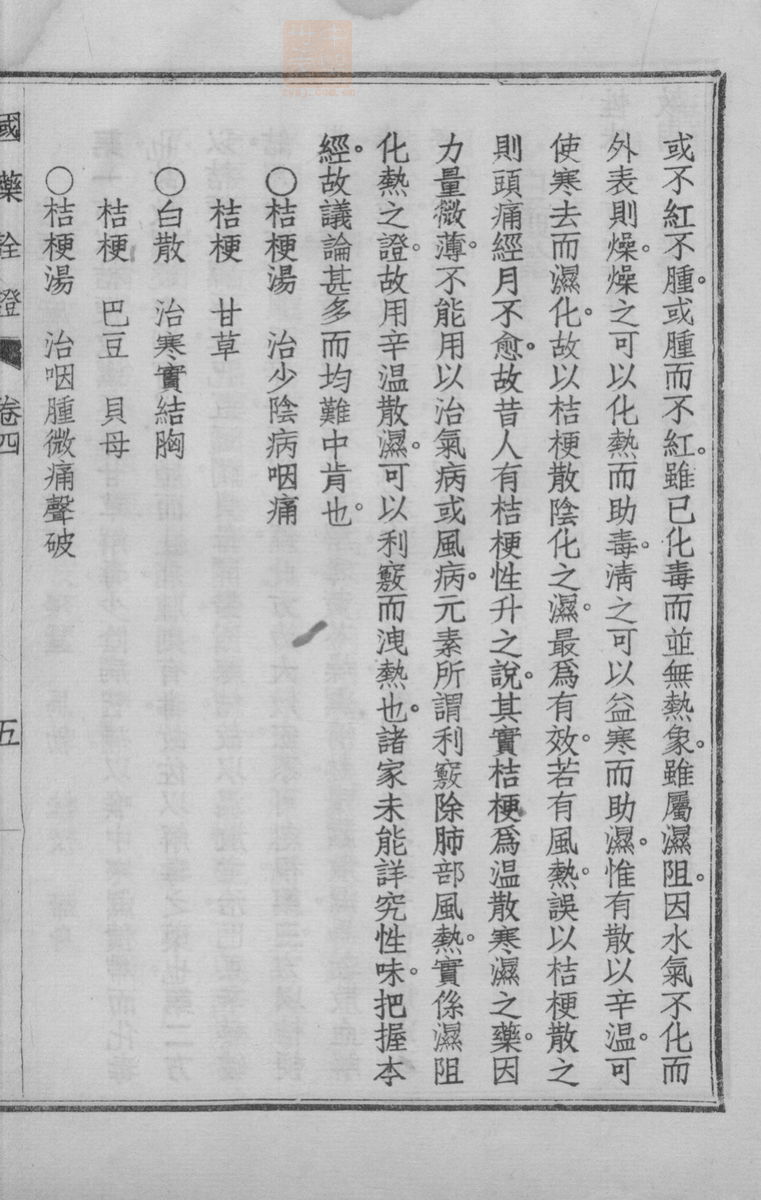 或不紅不腫。或腫而不紅。雖已化毒而並無熱象。雖屬濕阻。因水氣不化而
外表則燥。燥之可以化熱而助毒。淸之可以益寒而助濕。惟有散以辛溫。可
使寒去而濕化。故以桔梗散陰化之濕。最爲有效。若有風熱。誤以桔梗散之
則頭痛經月不愈。故昔人有桔梗性升之說。其實桔梗爲温散寒濕之藥。因
力量微薄。不能用以治氣病或風病。元素所謂利竅除肺部風熱。實係濕阻
化熱之證。故用辛溫散濕。可以利竅而洩熱也。諸家未能詳究性味。把握本
經。故議論甚多而均難中肯也。
○桔梗湯　治少陰病咽痛
桔梗　甘草
○白散　治寒實結胸
桔梗　巴豆　貝母
○桔梗湯　治咽腫微痛聲破
國藥詮證　卷四　五